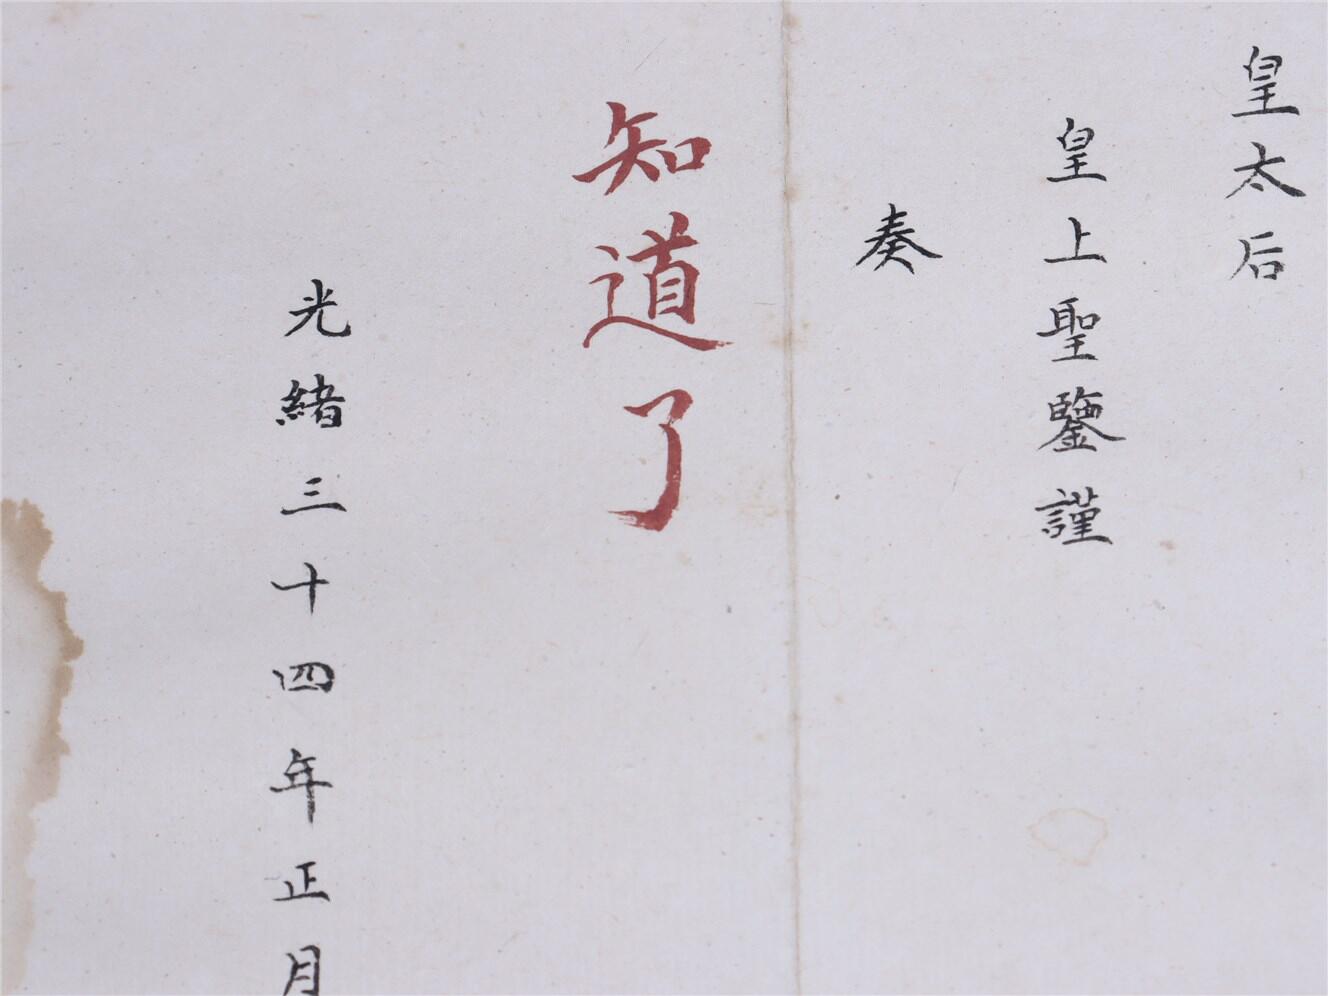 皇太后
皇上聖鑒謹
奏
知道了
光緒三十四年正月